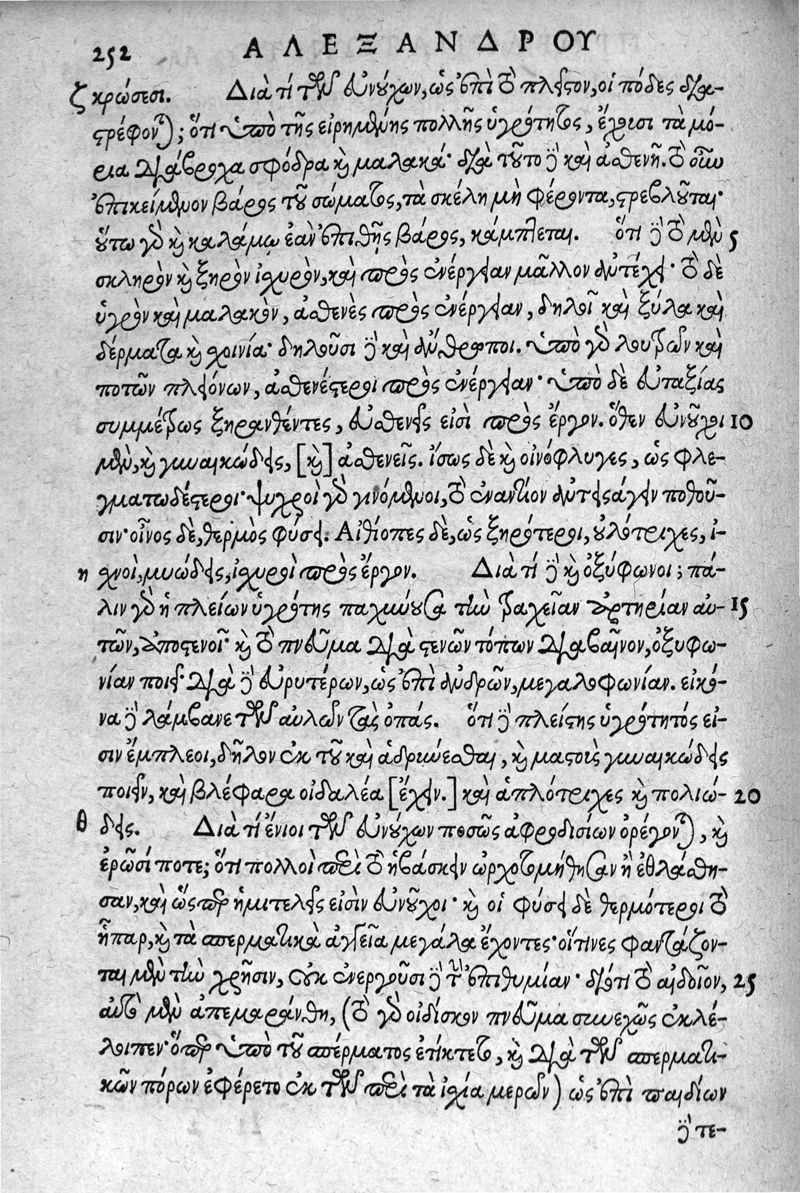 252 ΑΛΕΞΑΝΔΡΟΥ
ζ κρώσεσι. Διὰ τί τῶν εὐνούχων, ὡς ἐπὶ τὸ πλεῖστον, οἱ πόδες δια-
στρέφονται; ὅτι ὑπὸ τῆς εἰρημένης πολλῆς ὑγρότητος, ἔχουσι τὰ μό-
ρια διάβροχα σφόδρα καὶ μαλακά· διὰ τοῦτο δὲ καὶ ἀσθενῆ. τὸ οὖν
ἐπικείμενον βάρος τοῦ σώματος, τὰ σκέλη μὴ φέροντα, στρεβλοῦται·
οὕτω γὰρ καὶ καλάμῳ ἐὰν ἐπιθῇς βάρος, κάμπτεται. ὅτι δὲ τὸ μὲν 5
σκληρὸν καὶ ξηρὸν ἰσχυρὸν, καὶ πρὸς ἐνέργειαν μᾶλλον ἀντέχει· τὸ δὲ
ὑγρὸν καὶ μαλακὸν, ἀσθενὲς πρὸς ἐνέργειαν, δηλοῖ καὶ ξύλα καὶ
δέρματα καὶ σχοινία· δηλοῦσι δὲ καὶ ἄνθρωποι. ὑπὸ γὰρ λουτρῶν καὶ
ποτῶν πλειόνων, ἀσθενέστεροι πρὸς ἐνέργειαν· ὑπὸ δὲ εὐταξίας
συμμέτρως ξηρανθέντες, εὐσθενεῖς εἰσὶ πρὸς ἔργον. ὅθεν εὐνοῦχοι 10
μὲν, καὶ γυναικώδεις, [καὶ] ἀσθενεῖς. ἴσως δὲ καὶ οἰνόφλυγες, ὡς φλε-
γματωδέστεροι· ψυχροὶ γὰρ γινόμενοι, τὸ ἐναντίον αὐτοῖς ἄγειν ποθοῦ-
σιν· οἶνος δὲ, θερμὸς φύσει. Αἰθίοπες δὲ, ὡς ξηρότεροι, οὐλότριχες, ἰ-
η σχνοὶ, μυώδεις, ἰσχυροὶ πρὸς ἔργον. Διὰ τί δὲ καὶ ὀξύφωνοι; πά-
λιν γὰρ ἡ πλείων ὑγρότης παχύνουσα τὴν τραχεῖαν ἀρτηρίαν αὐ- 15
τῶν, ἀποστενοῖ καὶ τὸ πνεῦμα διὰ στενῶν τόπων διαβαῖνον, ὀξυφω-
νίαν ποιεῖ· διὰ δὲ εὐρυτέρων, ὡς ἐπὶ ἀνδρῶν, μεγαλοφωνίαν. εἰκό-
να δὲ λάμβανε τῶν αὐλῶν τὰς ὀπάς. ὅτι δὲ πλείστης ὑγρότητός εἰ-
σιν ἔμπλεοι, δῆλον ἐκ τοῦ καὶ ἁδρύνεσθαι, καὶ μαστοὺς γυναικώδεις
ποιεῖν, καὶ βλέφαρα οἰδαλέα [ἔχειν.] καὶ ἁπλότριχες καὶ πολιώ- 20
θ δεις. Διὰ τί ἔνιοι τῶν εὐνούχων ποσῶς ἀφροδισίων ὀρέγονται, καὶ
ἐρῶσί ποτε; ὅτι πολλοὶ περὶ τὸ ἡβάσκειν ὠρχοτομήθησαν ἢ ἐθλάσθη-
σαν, καὶ ὥσπερ ἡμιτελεῖς εἰσὶν εὐνοῦχοι· καὶ οἱ φύσει δὲ θερμότεροι τὸ
ἧπαρ, καὶ τὰ σπερματικὰ ἀγγεῖα μεγάλα ἔχοντες· οἵτινες φαντάζον-
ται μὲν τὴν χρῆσιν, οὐκ ἐνεργοῦσι δὲ τὴν ἐπιθυμίαν· διότι τὸ αἰδοῖον, 25
αὐτὸ μὲν ἀπεμαράνθη, (τὸ γὰρ οἰδίσκον πνεῦμα συνεχῶς ἐκλέ-
λοιπεν· ὅπερ ὑπὸ τοῦ σπέρματος ἐτίκτετο, καὶ διὰ τῶν σπερματι-
κῶν πόρων ἐφέρετο ἐκ τῶν περὶ τὰ ἰσχία μερῶν) ὡς ἐπὶ παιδίων
δὲ τε-